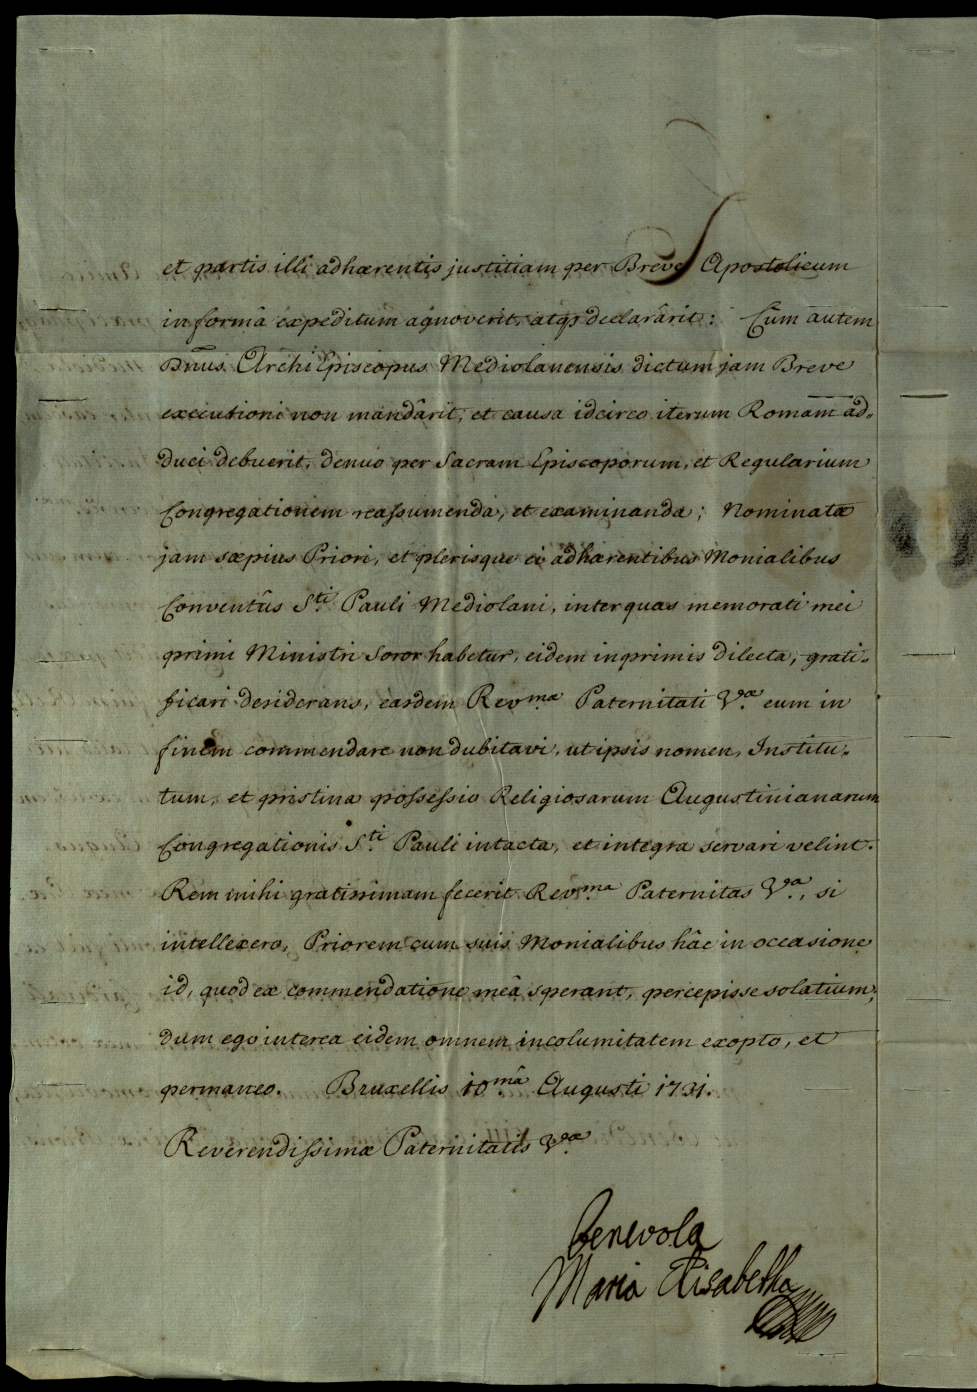 et partis illi adhærentis justitiam per Breve Apostolicum
in formâ expeditum agnoverit, atq3 declarârit: Cùm autem
Dn̄us Archi Episcopus Mediolanensis dictum jam Breve
executioni non mandârit, et causa idcirco iterum Romam ad-
duci debuerit, denuo per Sacram Episcoporum, et Regularium
Congregationem reassumenda, et examinanda; Nominatæ
jam sæpius Priori, et plerisque ei adhærentibus Monialibus
Conventûs S.ti Pauli Mediolani, inter quas memorati mei
primi Ministri Soror habetur, eidem inprimis dilecta, grati-
ficari desiderans, easdem Rev.mæ Paternitati V.æ eum in
finem commendare non dubitavi, ut ipsis nomen, Institu-
tum, et pristina possessio Religiosarum Augustinianarum
Congregationis S.ti Pauli intacta, et integra servari velint.
Rem mihi gratissimam fecerit Rev.ma Paternitas V.a, si
intellexero, Priorem cum suis Monialibus hâc in occasione
id, quod ex commendatione meâ sperant, percepisse solatium;
dum ego interea eidem omnem incolumitatem exopto, et
permaneo. Bruxellis 10.mâ Augusti 1731.
Reverendissimæ Paternitatis V.æ
Benevola
Maria Elisabetha